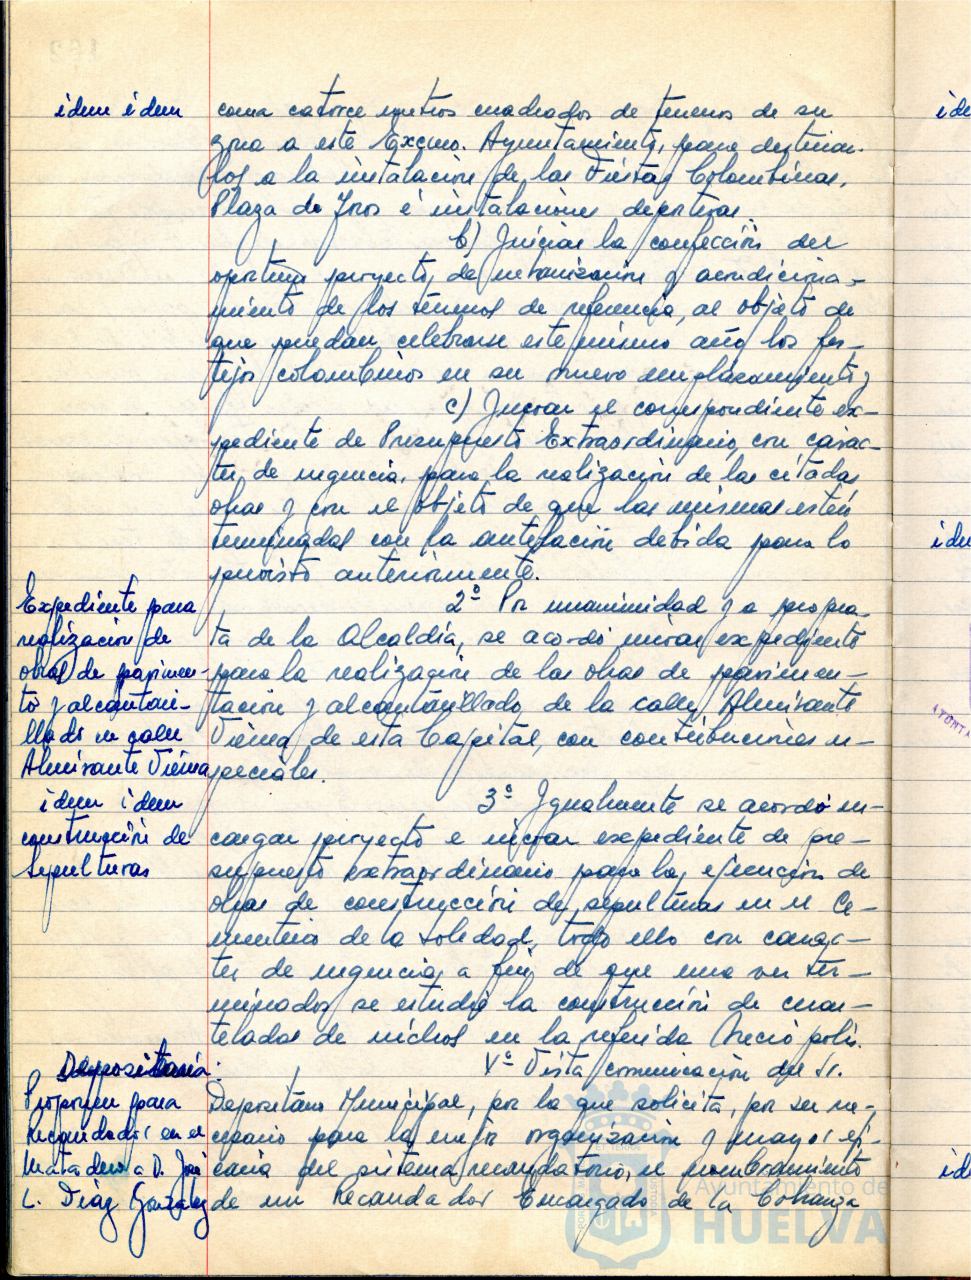 idem idem
coma catorce metros cuadrados de terrenos de su
zona a este Excmo. Ayuntamiento, para destinar-
los a la instalación de las Fiestas Colombinas,
Plaza de Toros e instalaciones deportivas.
b) Iniciar la confección del
oportuno proyecto, de urbanización y acondiciona-
miento de los terrenos de referencia, al objeto de
que puedan celebrarse este mismo año los fes-
tejos colombinos en su nuevo emplazamiento, y
c) Incoar el correspondiente ex-
pediente de Presupuesto Extraordinario, con carác-
ter de urgencia, para la realización de las citadas
obras y con el objeto de que las mismas estén
terminadas con la antelación debida para lo
previsto anteriormente.
Expediente para
realización de
obras de pavimen-
to y alcantari-
llado en calle
Almirante Viema
2º Por unanimidad y a propues-
ta de la Alcaldía, se acordó iniciar expediente
para la realización de las obras de pavimen-
tación y alcantarillado de la calle Almirante
Viema, de esta Capital, con contribuciones es-
peciales.
idem idem
construcción de
sepulturas
3º Igualmente se acordó en-
cargar proyecto e incoar expediente de pre-
supuesto extraordinario para la ejecución de
obras de construcción de sepulturas en el Ce-
menterio de la Soledad, todo ello con carác-
ter de urgencia, a fin de que una vez ter-
minados se estudie la construcción de cuar-
teladas de nichos en la referida Necrópolis.
Depositaría.
Proponen para
Recaudador en el
Matadero a D. José
L. Díaz González
Vº Vista comunicación del Sr.
Depositario Municipal, por la que solicita, por ser ne-
cesario para la mejor organización y mayor efi-
cacia del sistema recaudatorio, el nombramiento
de un Recaudador Encargado de la Cobranza
Ayuntamiento de
HUELVA